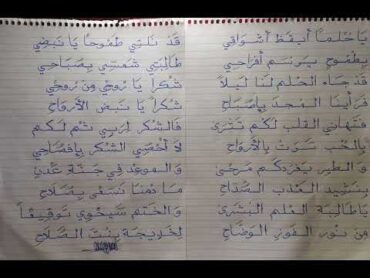 يَا حُلماً أيقظَ أشواقي
بِطموحٍ يرسم أفراحي
قد جاء الحلم لنا ليلاً
فرأينا المجد بإصباح
فتهاني القلب لكم تترى
بالحب سرت بالأرواح
والطير يغردكم مرحى
بنشيد العذب الصداح
يا طالبة العلم البشرى
من نور الفوز الوضاح
قد نلتي طموحاً يا نبضي
طالبتي شمسي بصباحي
شكراً يا روحي من روحي
شكراً يا نبض الأرواح
فالشكر لربي ثم لكم
لا أخفي الشكر بإفصاحي
والموعد في جنة عدن
ما دمنا نسعى بصلاح
والختم سيحوي توقيعاً
لخديجة بنت الصلاح